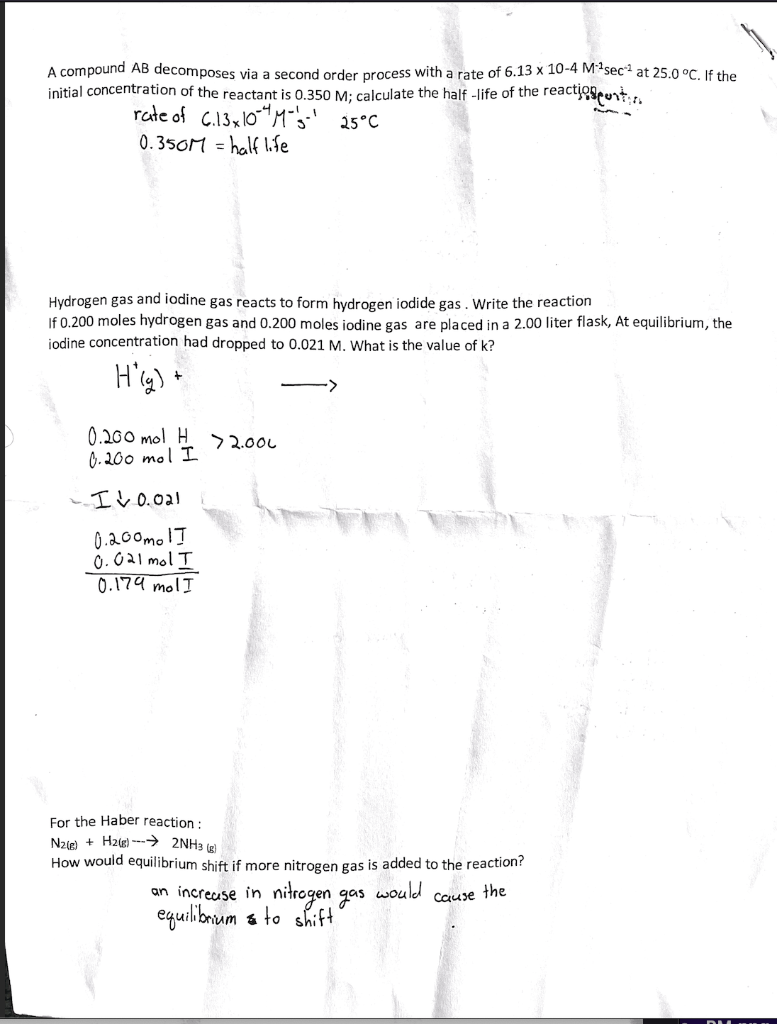 A compound AB decomposes via a second order process with a rate of 6.13 x 10-4 M⁻¹sec⁻¹ at 25.0 ºC. If the
initial concentration of the reactant is 0.350 M; calculate the half -life of the reaction
rate of 6.13x10⁻⁴M⁻¹s⁻¹ 25°C
0.350M = half life
Hydrogen gas and iodine gas reacts to form hydrogen iodide gas . Write the reaction
If 0.200 moles hydrogen gas and 0.200 moles iodine gas are placed in a 2.00 liter flask, At equilibrium, the
iodine concentration had dropped to 0.021 M. What is the value of k?
H⁺(g) + →
0.200 mol H > 2.00L
0.200 mol I
I ↓ 0.021
0.200mol I
0.021 mol I
0.179 mol I
For the Haber reaction :
N2(g) + H2(g) ---→ 2NH3 (g)
How would equilibrium shift if more nitrogen gas is added to the reaction?
an increase in nitrogen gas would cause the
equilibrium to shift